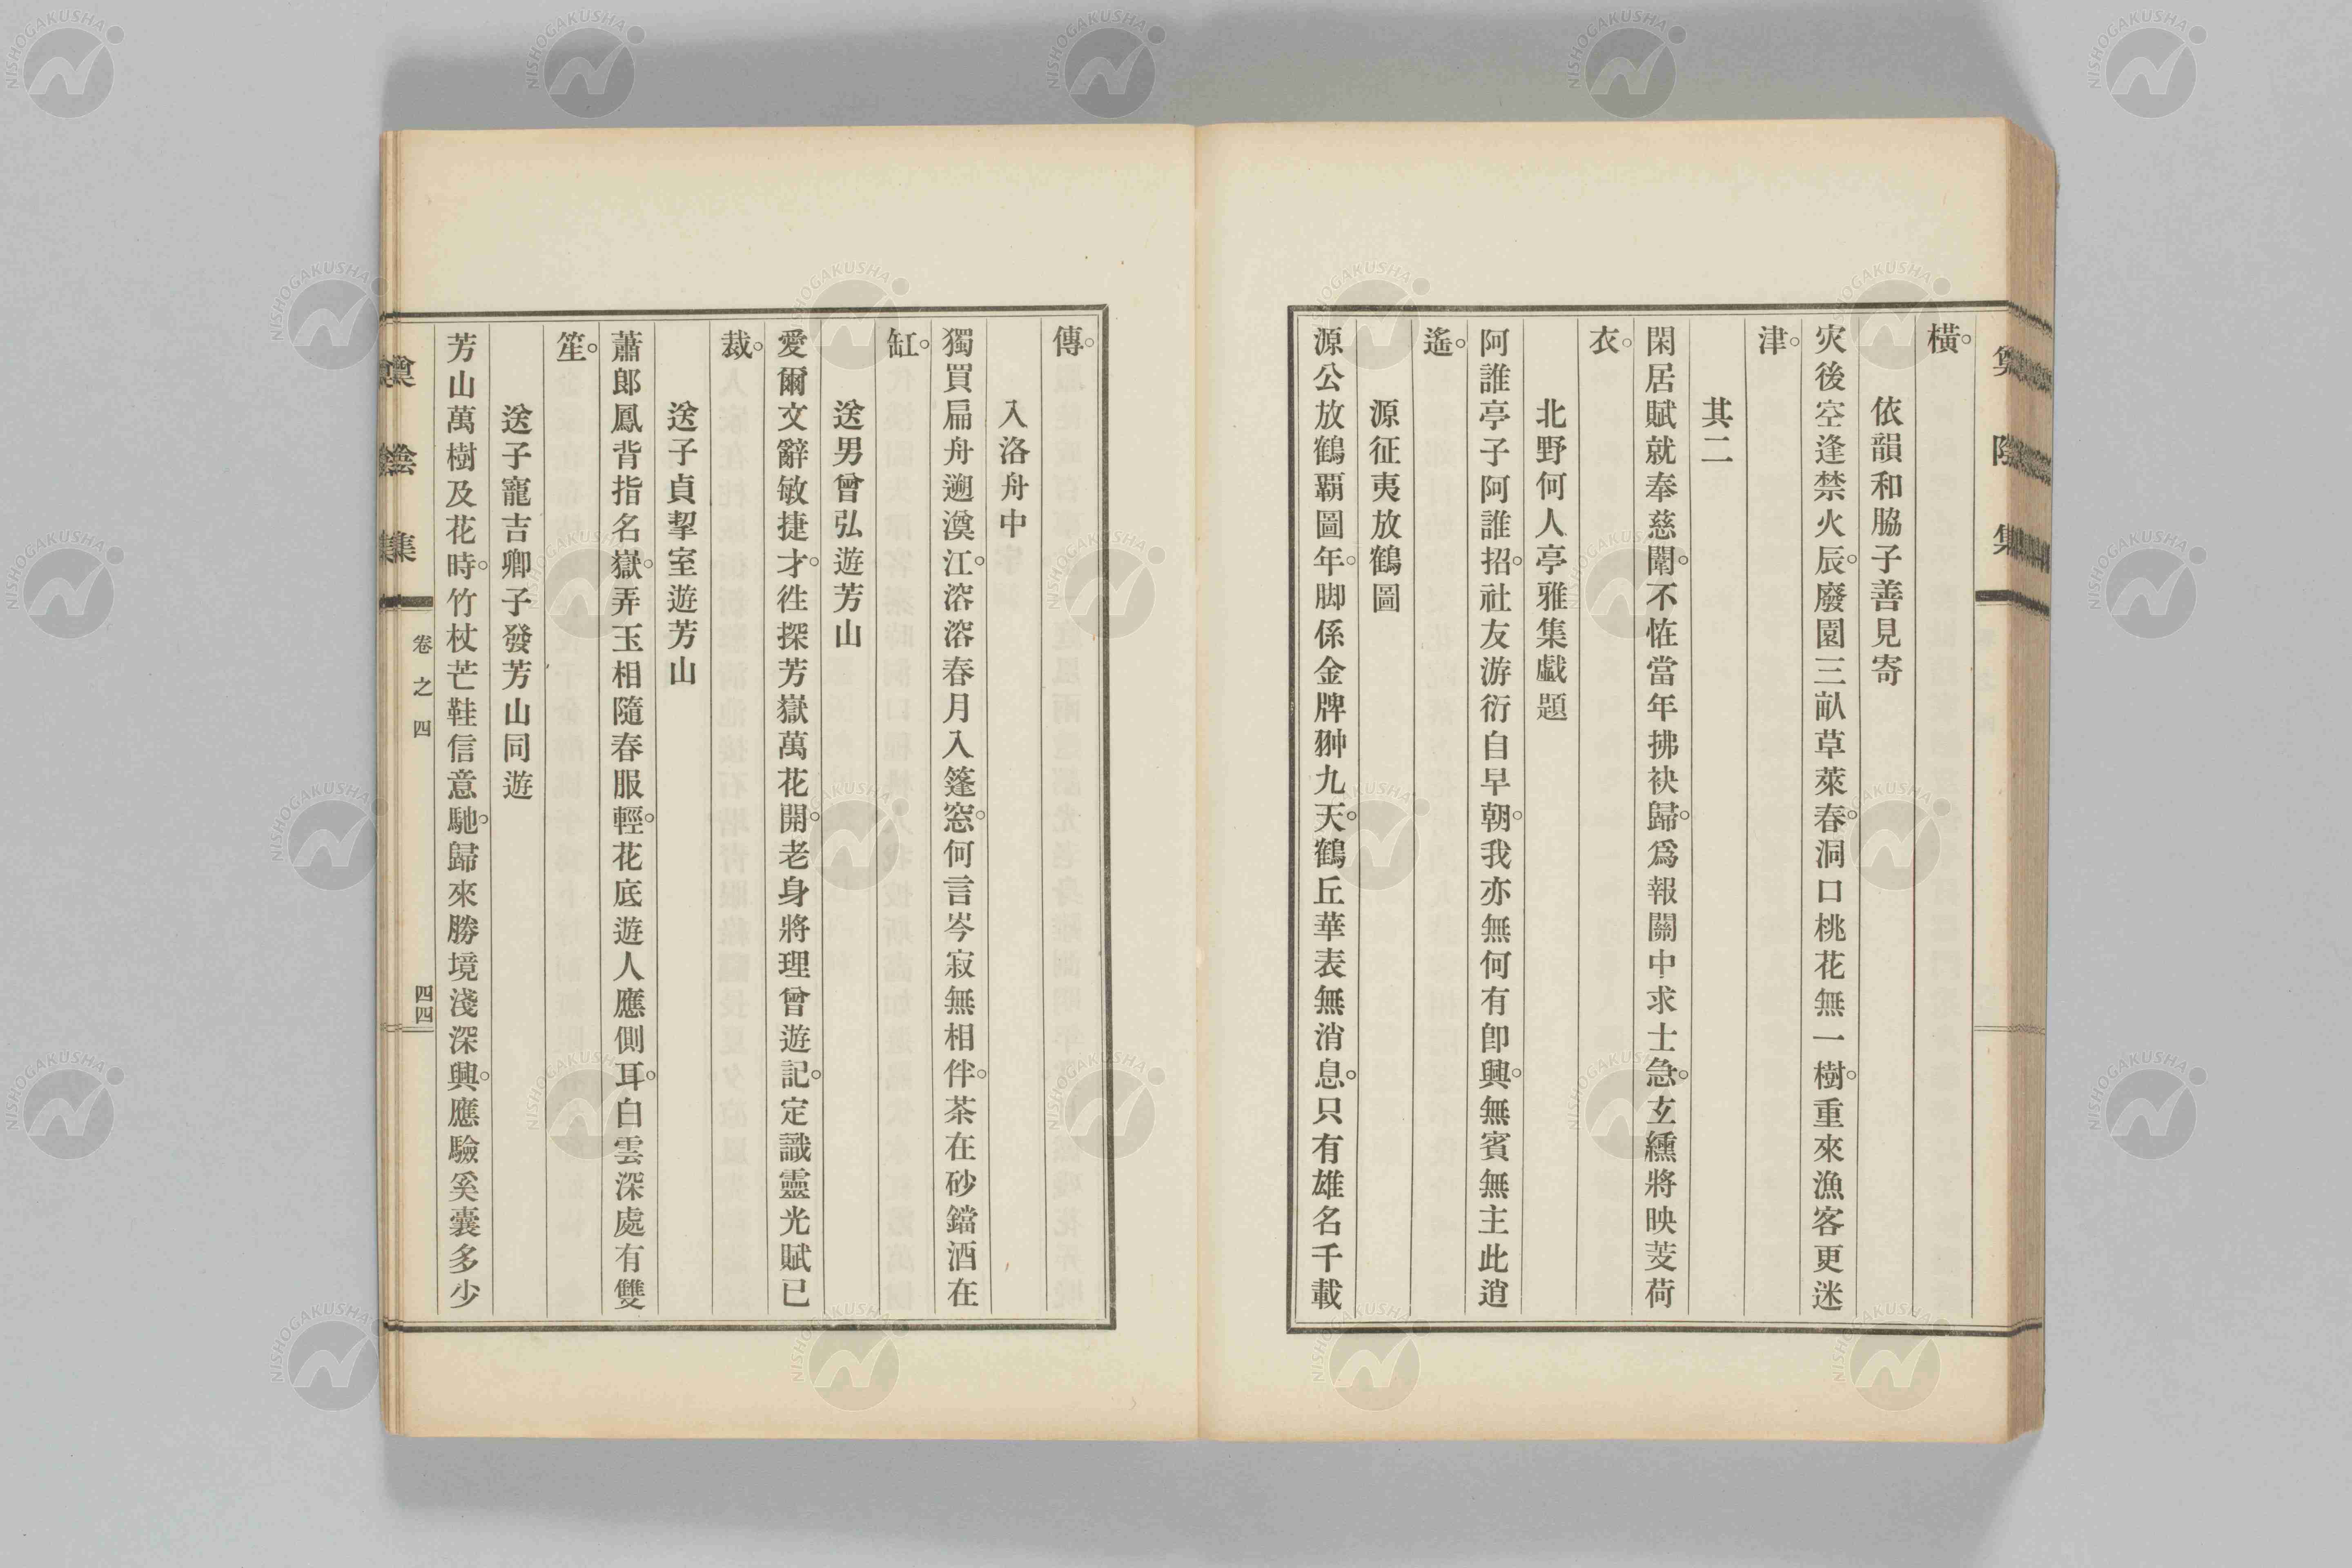 橫。
依韻和脇子善見寄
灾後空逢禁火辰。廢園三畝草萊春。洞口桃花無一樹。重來漁客更迷
津。
其二
閑居賦就奉慈闈。不恠當年拂袂歸。爲報關中求士急。玄纁將映芰荷
衣。
北野何人亭雅集戲題
阿誰亭子阿誰招。社友游衍自早朝。我亦無何有卽興。無賓無主此逍
遙。
源征夷放鶴圖
源公放鶴覇圖年。脚係金牌翀九天。鶴丘華表無消息。只有雄名千載
傳。
入洛舟中
獨買扁舟遡澳江。溶溶春月入篷窓。何言岑寂無相伴。茶在砂鐺酒在
缸。
送男曾弘遊芳山
愛爾文辭敏捷才。徃探芳嶽萬花開。老身將理曾遊記。定識靈光賦已
裁。
送子貞挈室遊芳山
蕭郎鳳背指名嶽。弄玉相隨春服輕。花底遊人應側耳。白雲深處有雙
笙。
送子寵吉卿子發芳山同遊
芳山萬樹及花時。竹杖芒鞋信意馳。歸來勝境淺深興。應驗奚囊多少
卷之四
四四
NISHOGAKUSHA